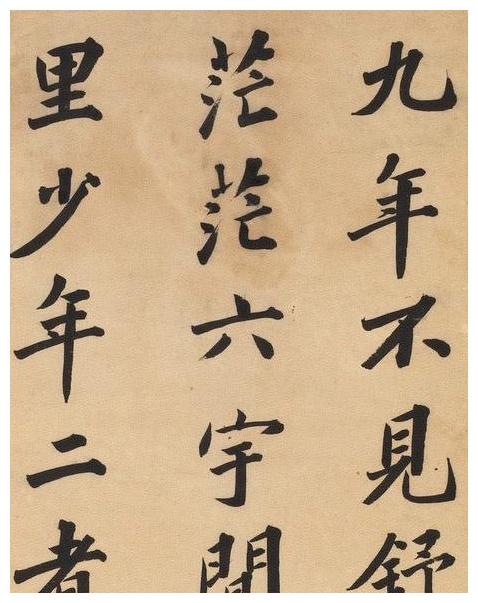 九年不見舒
茫茫六宇間
里少年二者